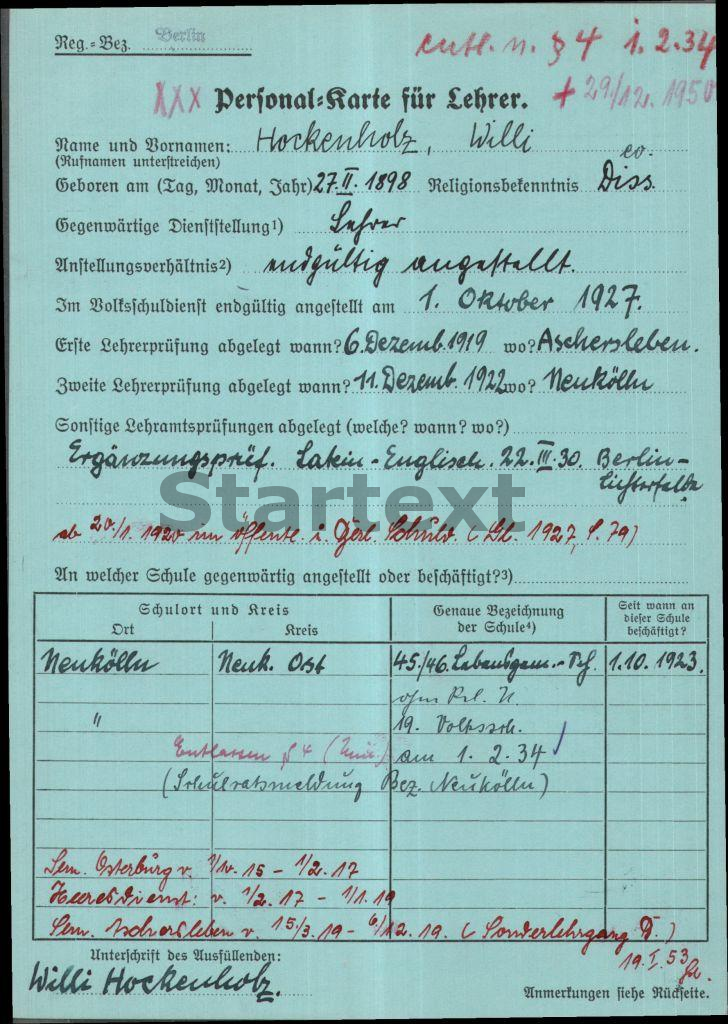 Reg.=Bez. Berlin
entl. n. § 4 1.2.34
XXX Personal=Karte für Lehrer. + 29/12. 1950
Name und Vornamen: Hockenholz, Willi
(Rufnamen unterstreichen)
ev.
Geboren am (Tag, Monat, Jahr) 27.II.1898 Religionsbekenntnis Diss.
Gegenwärtige Dienststellung1) Lehrer
Anstellungsverhältnis2) endgültig angestellt.
Im Volksschuldienst endgültig angestellt am 1. Oktober 1927.
Erste Lehrerprüfung abgelegt wann? 6. Dezemb. 1919 wo? Aschersleben.
Zweite Lehrerprüfung abgelegt wann? 11. Dezemb. 1922 wo? Neukölln
Sonstige Lehramtsprüfungen abgelegt (welche? wann? wo?)
Ergänzungsprüf. Latein-Englisch. 22.III.30. Berlin-
Lichterfelde
Startext
ab 20/1. 1920 im öffentl. Schuld. ( 1927, S. 79)
An welcher Schule gegenwärtig angestellt oder beschäftigt?3)
Schulort und Kreis
Ort Kreis
Genaue Bezeichnung
der Schule4)
Seit wann an
dieser Schule
beschäftigt?
Neukölln Neuk. Ost 45./46. 1.10.1923.
" 19. Volkssch.
Entlassen § 4 am 1.2.34
(Schulratsmeldung Bez. Neukölln)
Sem. Osterburg v. 1/10. 15 - 1/2. 17
Heeresdienst: v. 1/2. 17 - 1/1. 19
Sem. Aschersleben v. 15/3. 19 - 6/12. 19. (Sonderlehrgang)
19.I.53
Unterschrift des Ausfüllenden:
Willi Hockenholz.
Anmerkungen siehe Rückseite.